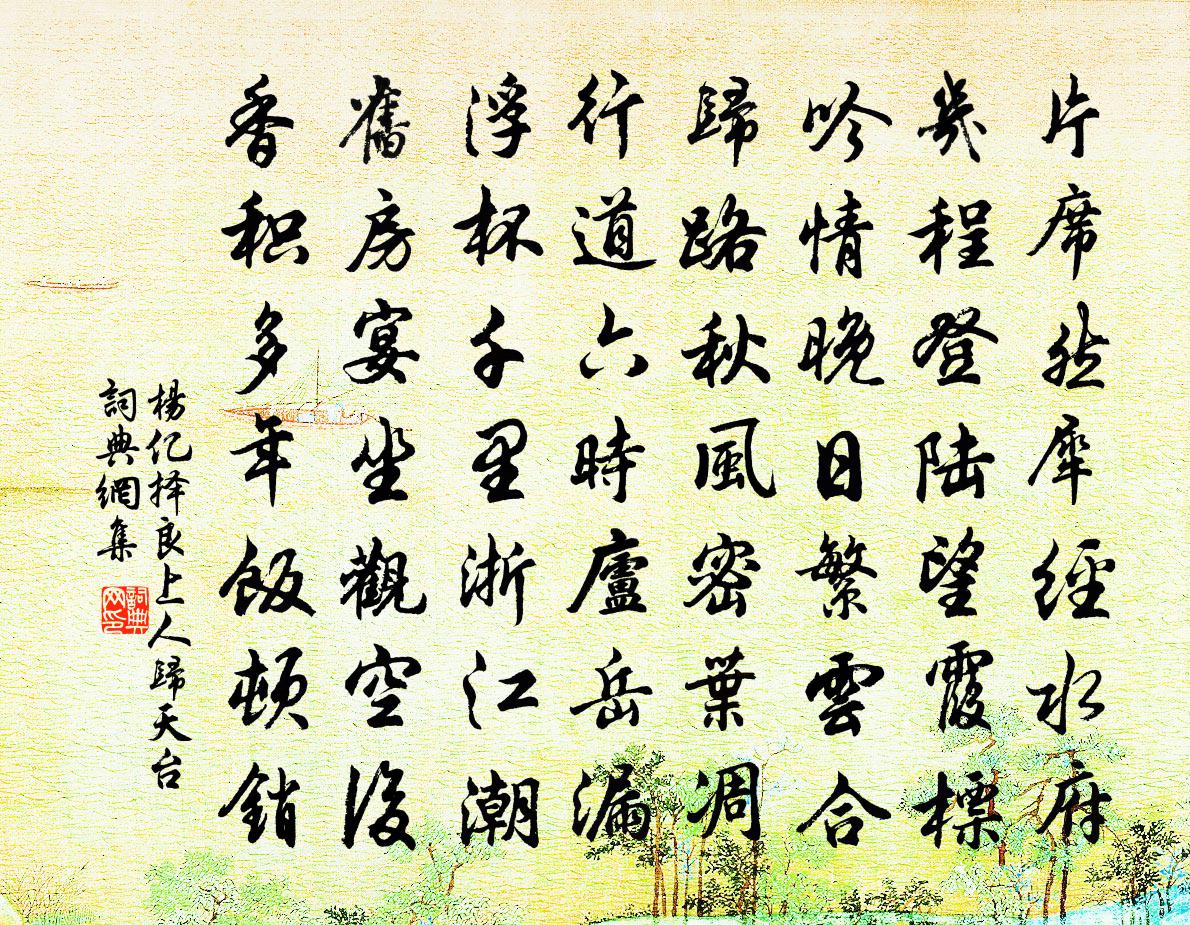 片席然犀經水府
幾程登陆望霞標
吟情晚日繁雲合
歸路秋風密葉凋
行道六時廬岳漏
浮杯千里浙江潮
舊房宴坐觀空後
香积多年飯頓銷
楊亿择良上人歸天台
詞典網集
詞典网印